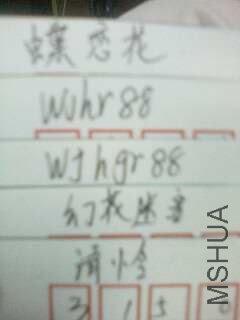 蝶恋花
Wjhr88
Wjhgr88
幻花迷音
清怜
315
MSHUA